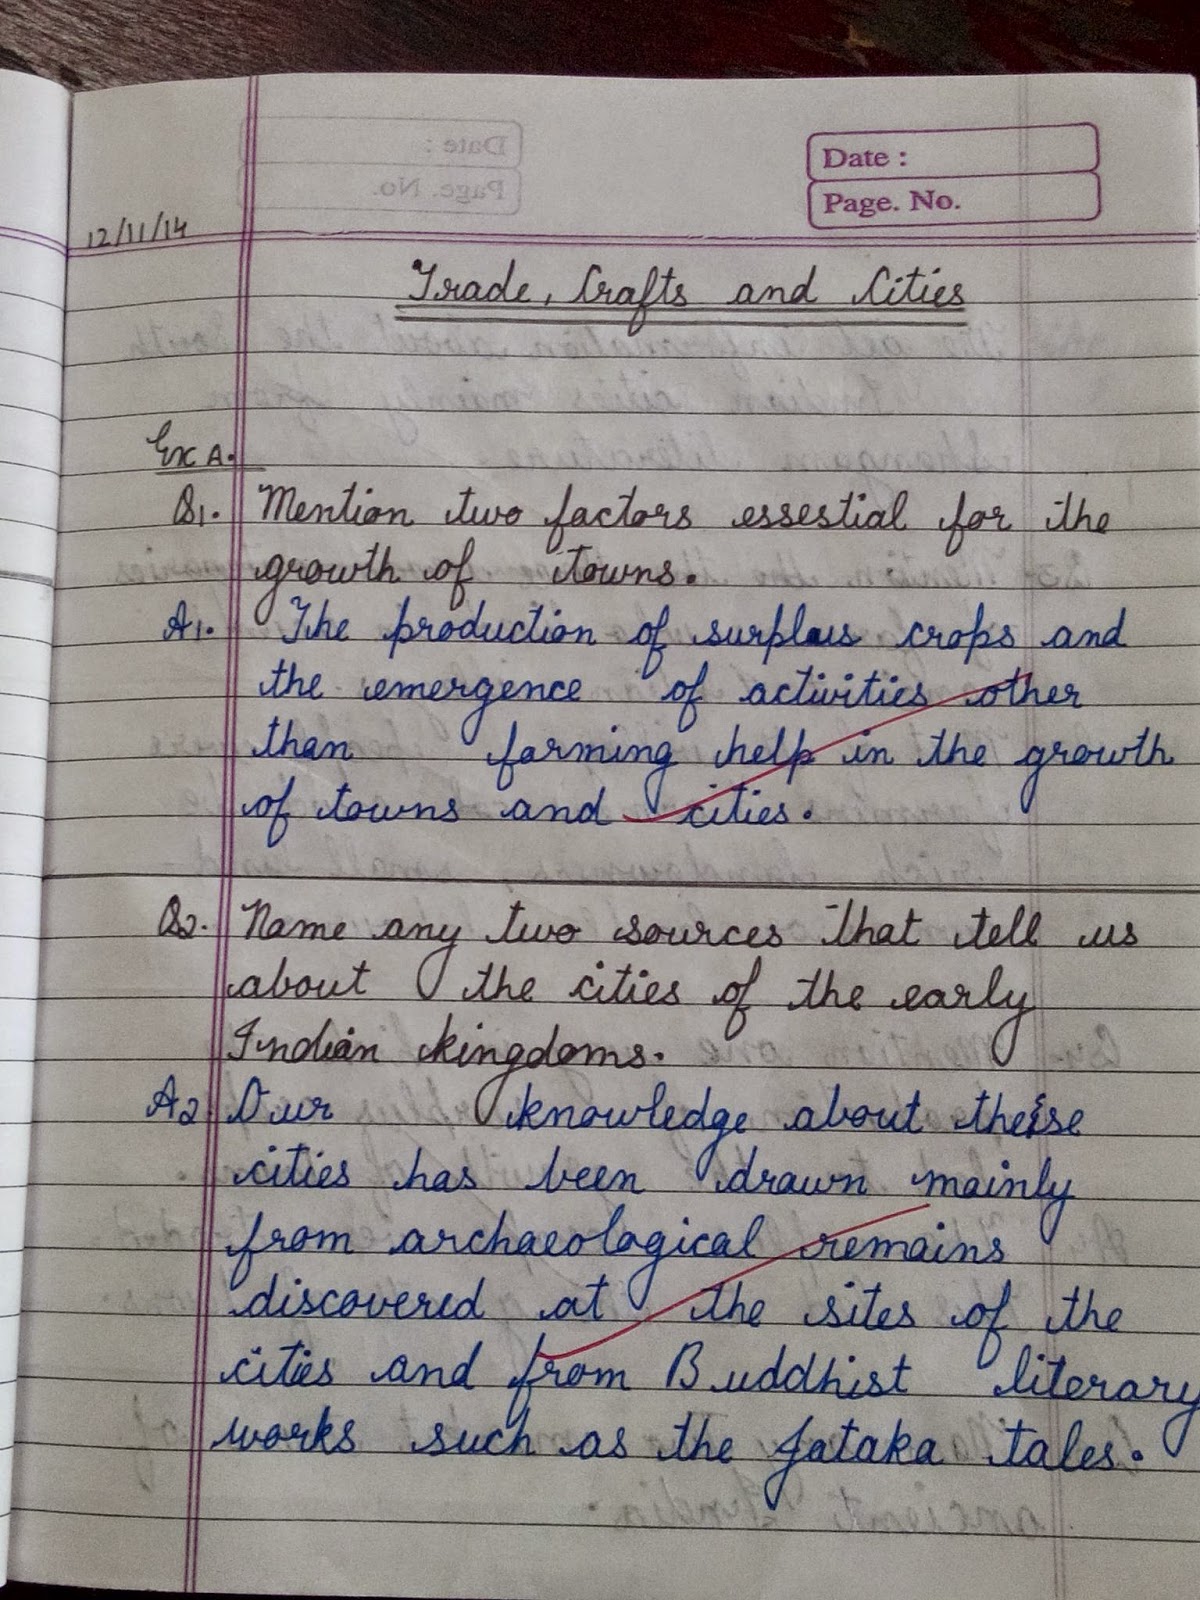 Date :
Page. No.
12/11/14
Trade, Crafts and Cities
Ex A.
Q1. Mention two factors essestial for the
growth of towns.
A1. The production of surplus crops and
the emergence of activities other
than farming help in the growth
of towns and cities.
Q2. Name any two sources that tell us
about the cities of the early
Indian kingdoms.
A2 Our knowledge about these
cities has been drawn mainly
from archaeological remains
discovered at the sites of the
cities and from Buddhist literary
works such as the Jataka tales.